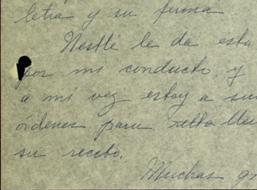 letra y su firma
Nestlé le da esta
por mi conducto, y
a mi vez estoy a su
órdenes para
su receta.
Muchas gr